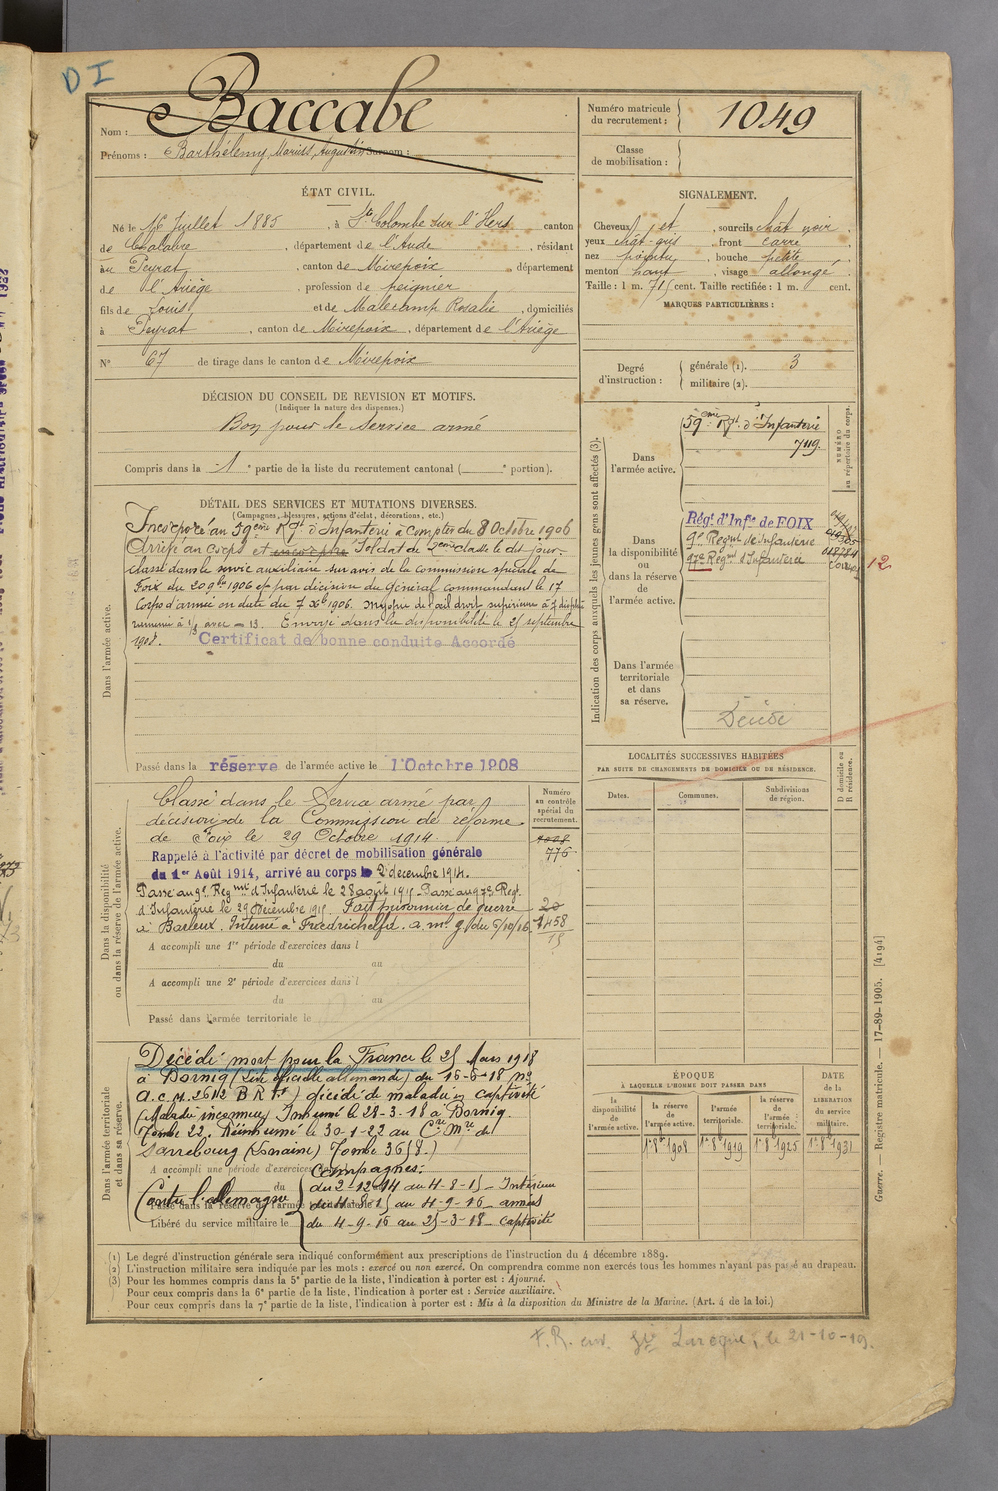 D I
Nom : Baccabe
Prénoms : Barthélemy Marius Augustin Surnom :
Numéro matricule du recrutement : 1049
Classe de mobilisation :
ÉTAT CIVIL.
Né le 16 Juillet 1885, à Ste Colombe sur l'Hers canton
de Chalabre, département de l'Aude, résidant
au Peyrat, canton de Mirepoix, département
de l'Ariège, profession de peignier
fils de Louis et de Malecamp Rosalie, domiciliés
à Peyrat, canton de Mirepoix, département de l'Ariège
N° 67 de tirage dans le canton de Mirepoix
SIGNALEMENT.
Cheveux et, sourcils chât noir
yeux chât-gris, front carré
nez pointu, bouche petite
menton haut, visage allongé.
Taille : 1 m. 71 cent. Taille rectifiée : 1 m. cent.
MARQUES PARTICULIÈRES :
Degré d'instruction : générale (1). 3
militaire (2).
DÉCISION DU CONSEIL DE REVISION ET MOTIFS.
(Indiquer la nature des dispenses.)
Bon pour le Service armé
Compris dans la 1e partie de la liste du recrutement cantonal ( e portion).
DÉTAIL DES SERVICES ET MUTATIONS DIVERSES.
(Campagnes, blessures, actions d'éclat, décorations, etc.)
Dans l'armée active.
Incorporé au 59eme Rgt d'Infanterie à compter du 8 Octobre 1906
Arrivé au corps et Soldat de 2eme classe le dit jour.
Classé dans le service auxiliaire sur avis de la commission spéciale de
Foix du 20 9bre 1906 et par décision du Général commandant le 17
Corps d'armée en date du 7 Xbre 1906. Myopie de l'œil droit supérieure à 7
à 1/3 avec - 13. Envoyé dans la disponibilité le 25 septembre
1908. Certificat de bonne conduite Accordé
Passé dans la réserve de l'armée active le 1 Octobre 1908
Indication des corps auxquels les jeunes gens sont affectés (3).
NUMÉRO au répertoire du corps.
Dans l'armée active.
59eme Rgt. d'Infanterie
7119.
Dans la disponibilité ou dans la réserve de l'armée active.
Régt d'Infie de FOIX
9e Regint de Infanterie
97e Regint d'Infanterie
018784
12
Dans l'armée territoriale et dans sa réserve.
Décédé
LOCALITÉS SUCCESSIVES HABITÉES
PAR SUITE DE CHANGEMENTS DE DOMICILE OU DE RÉSIDENCE.
Dates. Communes. Subdivisions de région. D domicile ou R résidence.
Dans la disponibilité ou dans la réserve de l'armée active.
Numéro au contrôle spécial du recrutement.
Classé dans le Service armé par
décision de la Commission de réforme
de Foix le 29 Octobre 1914.
776
Rappelé à l'activité par décret de mobilisation générale
du 1er Août 1914, arrivé au corps le 2 décembre 1914.
Passé au 9e Regmt d'Infanterie le 28 août 1915. Passé au 97e Regt
d'Infanterie le 29 Décembre 1915. Fait prisonnier de guerre
à Barleux. Interné à Friedrichsfeld. a. m. g. du 5/10/16.
20
1458
15
A accompli une 1re période d'exercices dans l
du au
A accompli une 2e période d'exercices dans l
du au
Passé dans l'armée territoriale le
Dans l'armée territoriale et dans sa réserve.
Décédé mort pour la France le 25 Mars 1918
à Dornig (Liste officielle allemande) du 16-6-18 no
a.c.m. 2612 B R ) décédé de maladie en captivité
(Maladie inconnue) Inhumé le 28-3-18 à Dornig.
Tombe 22. Réinhumé le 30-1-22 au Cre Mre de
Sarrebourg (Lorraine) Tombe 3658.)
A accompli une période d'exercices
Campagnes:
Contre l'allemagne
du 2-12-14 au 4-8-15 - Intérieur
du 4-8-15 au 4-9-16 - armées
du 4-9-16 au 25-3-18 - captivité
Passé dans la réserve de l'armée
Libéré du service militaire le
ÉPOQUE
À LAQUELLE L'HOMME DOIT PASSER DANS
la disponibilité de l'armée active. la réserve de l'armée active. l'armée territoriale. la réserve de l'armée territoriale.
DATE de la LIBÉRATION du service militaire.
1er 8bre 1908 1er 8bre 1919 1er 8bre 1925 1er 8bre 1931
(1) Le degré d'instruction générale sera indiqué conformément aux prescriptions de l'instruction du 4 décembre 1889.
(2) L'instruction militaire sera indiquée par les mots : exercé ou non exercé. On comprendra comme non exercés tous les hommes n'ayant pas passé au drapeau.
(3) Pour les hommes compris dans la 5e partie de la liste, l'indication à porter est : Ajourné.
Pour ceux compris dans la 6e partie de la liste, l'indication à porter est : Service auxiliaire.
Pour ceux compris dans la 7e partie de la liste, l'indication à porter est : Mis à la disposition du Ministre de la Marine. (Art. 4 de la loi.)
Guerre. — Registre matricule. — 17-89-1905. [4194]
F.R. env. Gie Laroque, le 21-10-19.